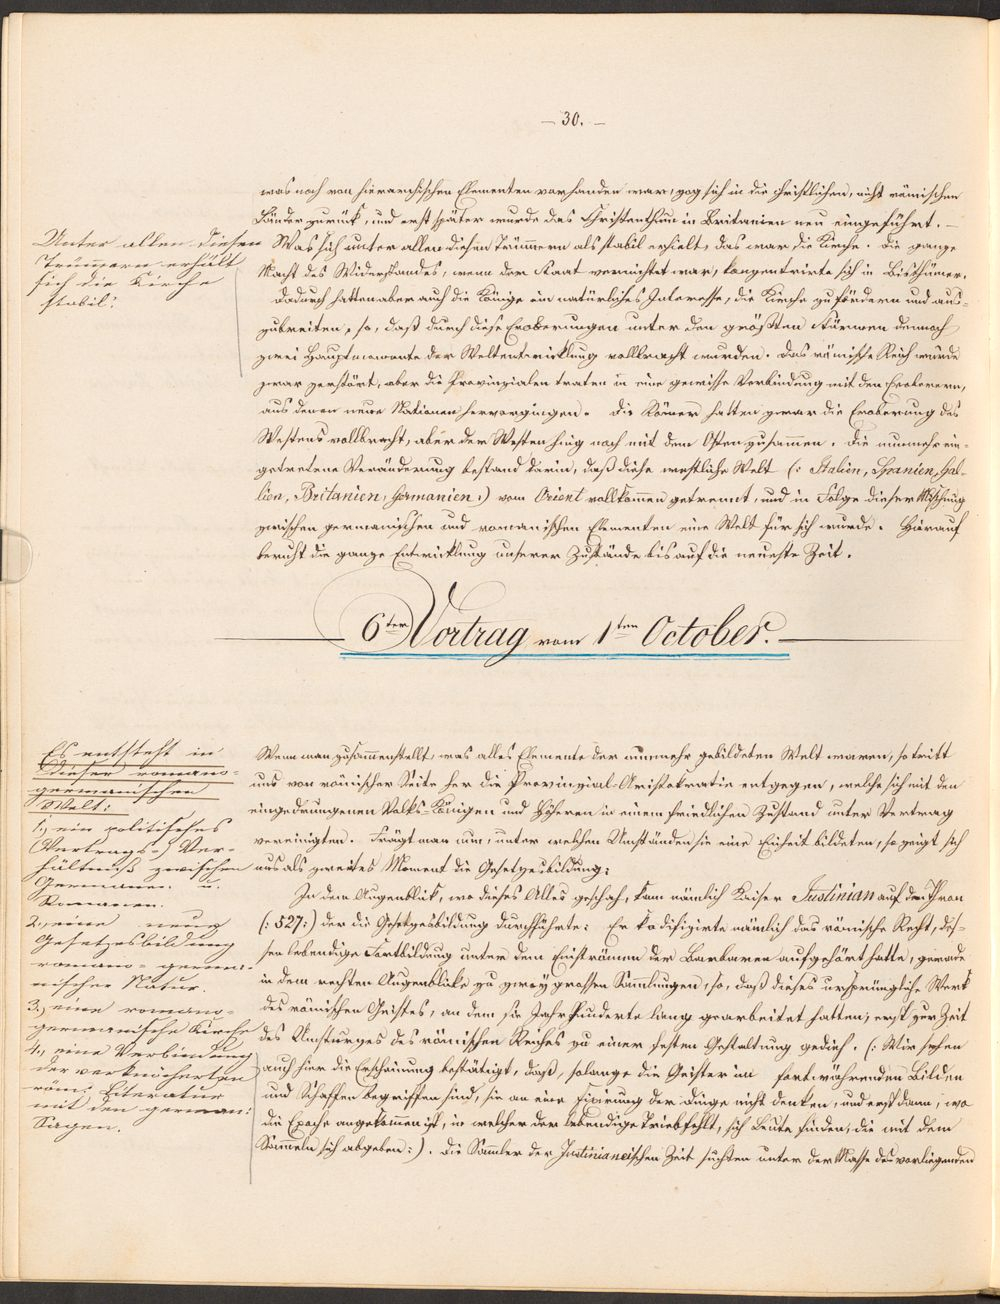 — 30. —
was noch von hierarchischen Elementen vorhanden war, zog sich in die christlichen, nicht römischen
Länder zurück, und erst später wurde das Christenthum in Britanien neu eingeführt. —
Unter allen diesen
Trümmern erhält
sich die Kirche
stabil.
Was sich unter allen diesen Trümmern als stabil erhielt, das war die Kirche. Die ganze
Macht des Widerstandes, wenn der Staat vernichtet war, konzentrirte sich in Bisthümer.
Dadurch hatten aber auch die Könige ein natürliches Interesse, die Kirche zu fördern und aus=
zubreiten, so, daß durch diese Eroberungen unter den größten Stürmen dennoch
zwei Hauptmomente der Weltentwicklung vollbracht wurden. Das römische Reich wurde
zwar zerstört, aber die Provinzialen traten in eine gewisse Verbindung mit den Eroberern,
aus denen neue Nationen hervorgingen. Die Römer hatten zwar die Eroberung des
Westens vollbracht, aber der Westen hing noch mit dem Osten zusammen. Die nunmehr ein=
getretene Veränderung bestand darin, daß diese westliche Welt (: Italien, Spanien, Gal=
lien, Britanien, Germanien :) vom Orient vollkommen getrennt, und in Folge dieser Mischung
zwischen germanischen und romanischen Elementen eine Welt für sich wurde. Hierauf
beruht die ganze Entwicklung unserer Zustände bis auf die neueste Zeit.
6ter Vortrag vom 1ten October.
Es entsteht in
dieser romano=
germanischen
Welt:
1., ein politisches
(Vertrags-) Ver=
hältniß zwischen
Germanen u.
Romanen.
2., eine neue
Gesetzesbildung
romano-germa=
nischer Natur.
3., eine romano=
germanische Kirche
4., eine Verbindung
der verknöcherten
röm. Literatur
mit den german:
Sagen.
Wenn man zusammenstellt, was alles Elemente der nunmehr gebildeten Welt waren, so tritt
uns von römischer Seite her die Provinzial-Aristokratie entgegen, welche sich mit den
eingedrungenen Volks-Königen und Höheren in einem friedlichen Zustand unter Vertrag
vereinigten. Frägt man nun, unter welchen Umständen sie eine Einheit bildeten, so zeigt sich
uns als zweites Moment die Gesetzesbildung:
In dem Augenblick, wo dieses Alles geschah, kam nämlich Kaiser Justinian auf den Thron
(: 527 :) der die Gesetzesbildung durchführte: Er kodifizirte nämlich das römische Recht, des=
sen lebendige Fortbildung unter dem Einströmen der Barbaren aufgehört hatte, gerade
in dem rechten Augenblicke zu zwey großen Sammlungen, so, daß dieses ursprüngliche Werk
des römischen Geistes, an dem sie Jahrhunderte lang gearbeitet hatten, erst zur Zeit
des Umsturzes des römischen Reiches zu einer festen Gestaltung gedieh. (: Wir sehen
auch hier die Erscheinung bestätigt, daß, solange die Geister im fortwährenden Bilden
und Schaffen begriffen sind, sie an eine Fixirung der Dinge nicht denken, und erst dann, wo
die Epoche angekommen ist, in welcher der lebendige Trieb fehlt, sich Leute finden, die mit dem
Sammeln sich abgeben :). Die Sammler der Justinianeischen Zeit suchten unter der Masse des vorliegenden